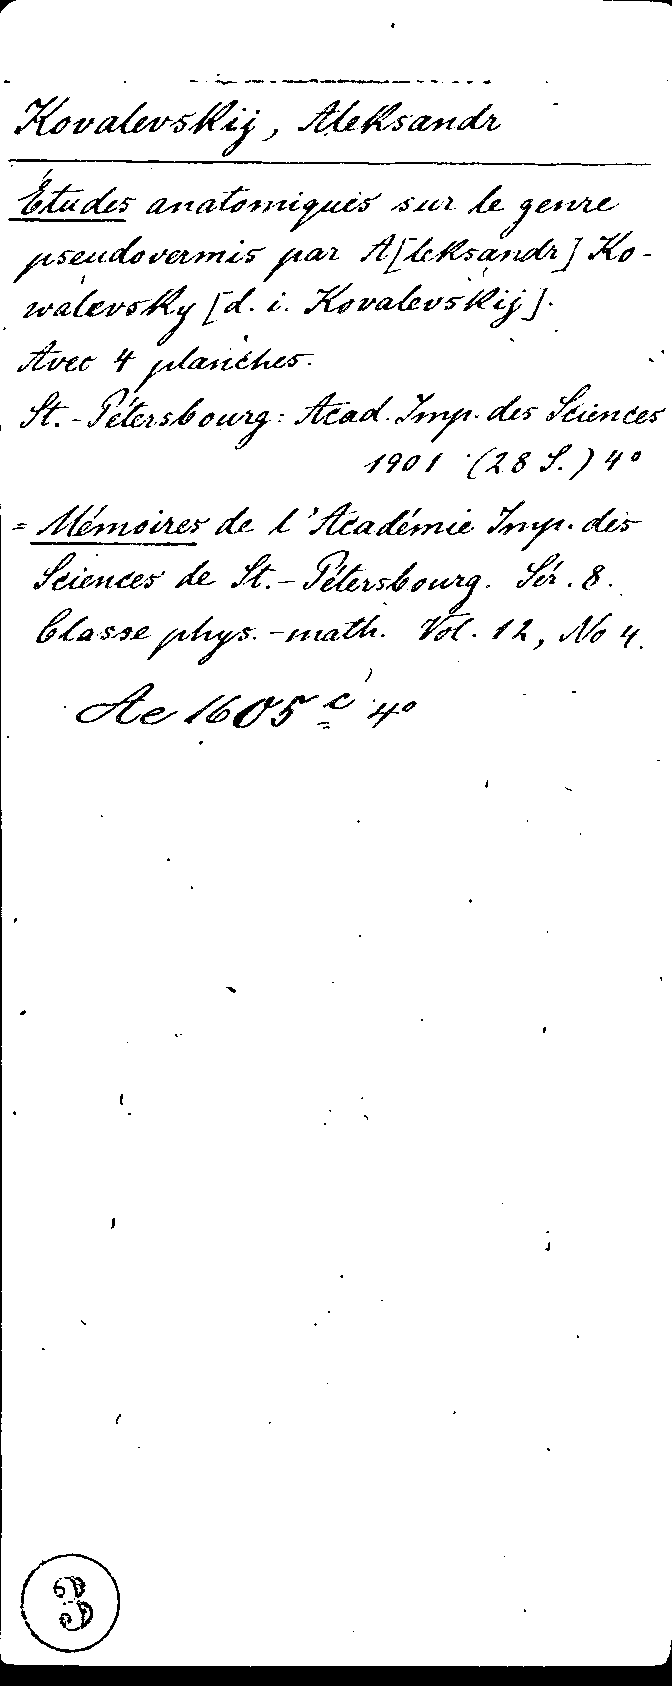 Kovalevskij, Aleksandr
Études anatomiques sur le genre
pseudovermis par A[leksandr] Ko-
walevsky [d. i. Kovalevskij].
Avec 4 planches.
St.-Pétersbourg: Acad. Imp. des Sciences
1901 (28 S.) 4°
= Mémoires de l'Académie Imp. des
Sciences de St.-Pétersbourg. Sér. 8.
Classe phys.-math. Vol. 12, No 4.
Ac 1605 c 4°
3